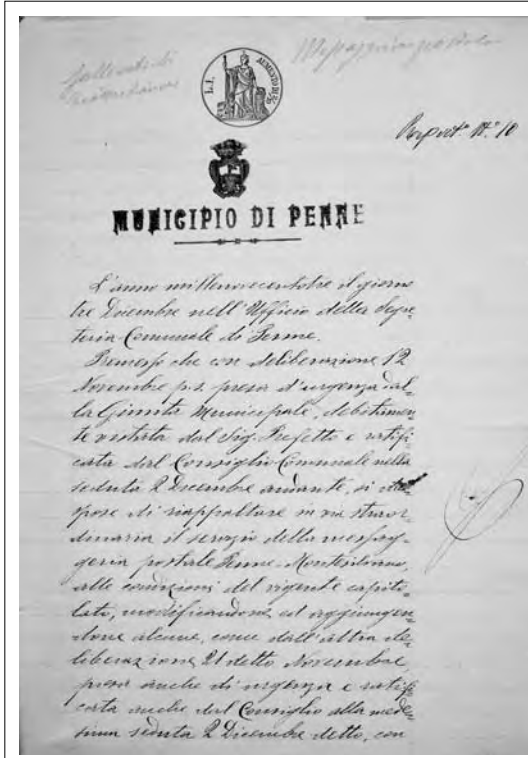 L. 1.
AUMENTO DI 2/10
Repert.° N.° 10
MUNICIPIO DI PENNE
L'anno millenovecentotre il giorno
tre Dicembre nell'Ufficio della Segre-
teria Comunale di Penne.
Premesso che con deliberazione 12
Novembre p.s. presa d'urgenza dal-
la Giunta Municipale, debitamen-
te vistata dal Sig. Prefetto e ratifi-
cata dal Consiglio Comunale nella
seduta 2 Dicembre andante, si dis-
pose di riappaltare in via straor-
dinaria il servizio della messag-
geria postale Penne-Montesilvano,
alle condizioni del vigente capito-
lato, modificandone ed aggiungen-
done alcune, come dall'altra de-
liberazione 21 detto Novembre,
presa anche di urgenza e ratifi-
cata anche dal Consiglio alla mede-
sima seduta 2 Dicembre detto, con